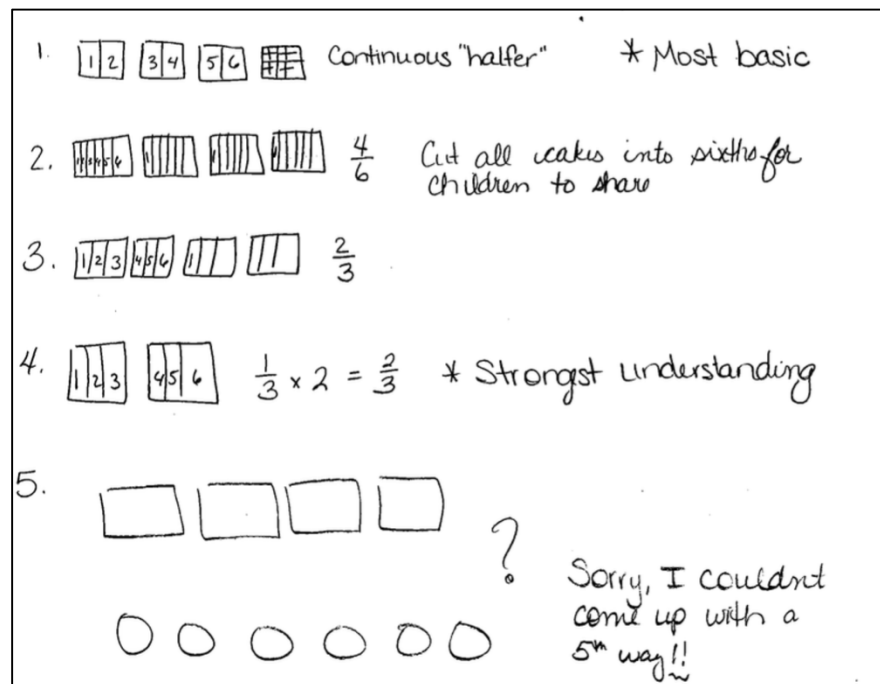 1. 1 2 3 4 5 6 Continuous "halfer" * Most basic
2. 1 2 3 4 5 6 1 1 1 4/6 Cut all cakes into sixths for
children to share
3. 1 2 3 4 5 6 1 2/3
4. 1 2 3 4 5 6 1/3 × 2 = 2/3 * Strongst understanding
5.
?
Sorry, I couldnt
come up with a
5th way!!